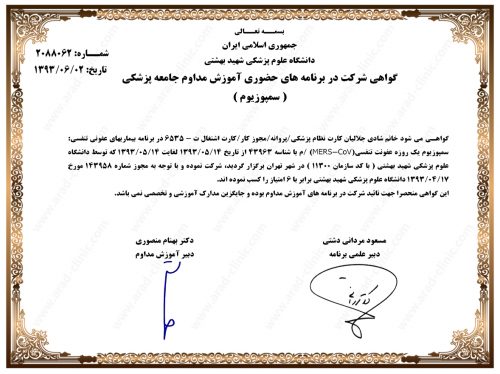 بسمه تعالی
جمهوری اسلامی ایران
شماره: ۲۰۸۸۰۶۲
دانشگاه علوم پزشکی شهید بهشتی
تاریخ: ۱۳۹۳/۰۶/۰۲
گواهی شرکت در برنامه های حضوری آموزش مداوم جامعه پزشکی
( سمپوزیوم )
گواهی می شود خانم شادی جلالیان کارت نظام پزشکی/پروانه/مجوز کار/کارت اشتغال ت - ۶۵۳۵ در برنامه بیماریهای عفونی تنفسی:
سمپوزیوم یک روزه عفونت تنفسی(MERS-CoV) /م با شناسه ۴۳۹۶۳ از تاریخ ۱۳۹۳/۰۵/۱۴ لغایت ۱۳۹۳/۰۵/۱۴ که توسط دانشگاه
علوم پزشکی شهید بهشتی ( با کد سازمان ۱۱۳۰۰ ) در شهر تهران برگزار گردید، شرکت نموده و با توجه به مجوز شماره ۱۴۳۹۵۸ مورخ
۱۳۹۳/۰۴/۱۷ دانشگاه علوم پزشکی شهید بهشتی برابر با ۶ امتیاز را کسب نموده اند.
این گواهی منحصرا جهت تائید شرکت در برنامه های آموزش مداوم بوده و جایگزین مدارک آموزشی و تخصصی نمی باشد.
مسعود مردانی دشتی
دبیر علمی برنامه
دکتر بهنام منصوری
دبیر آموزش مداوم
www.arad-clinic.com